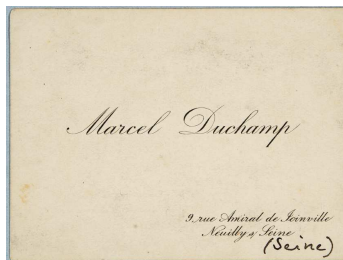 Marcel Duchamp
9, rue Amiral de Joinville
Neuilly s/ Seine
(Seine)